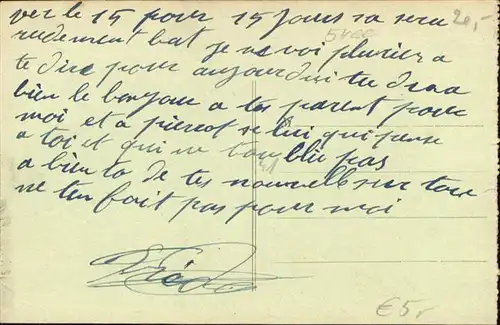 ver le 15 pour 15 jours sa sera
rudement bat je ne voi plus rien a
te dire pour aujourdui tu dira
bien le bonjour a tes parent pour
moi et a pierrot se lui qui pense
a toi et qui ne toublie pas
a bien to de tes nouvelle sur tou
ne ten fait pas pour moi
20,-
€5,-